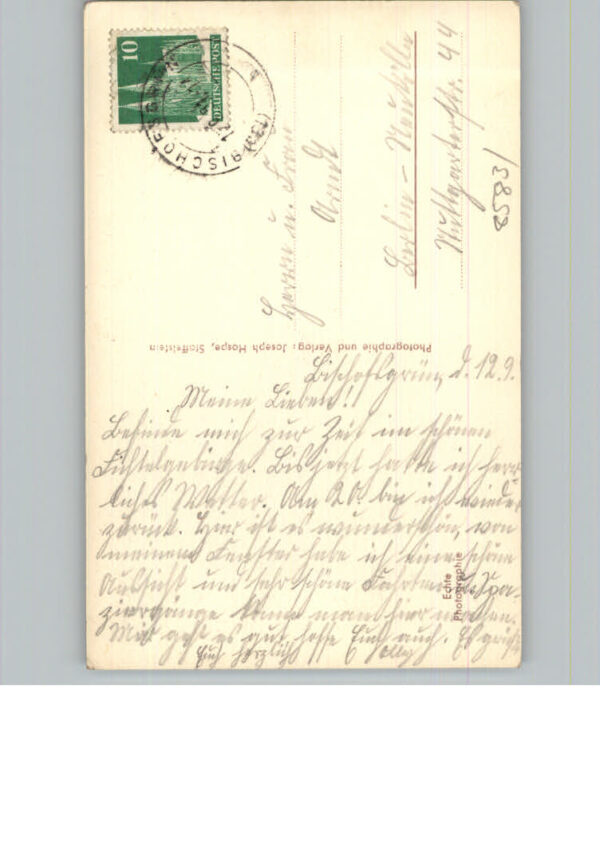 10
DEUTSCHE POST
BISCHOFSGRÜN
Herrn u. Frau
Arndt
Berlin - Neukölln
Stuttgarterstr. 44
8583/
Photographie und Verlag: Joseph Haspe, Staffelstein
Echte
Photographie
Bischofsgrün, d. 12.9.
Meine Lieben!
Befinde mich zur Zeit im schönen
Fichtelgebirge. Bis jetzt hatte ich herr
liches Wetter. Am 20. bin ich wieder
zurück. Hier ist es wunderschön, von
meinem Fenster habe ich eine schöne
Aussicht und sehr schöne Fahrten u. Spa-
ziergänge kann man hier machen.
Mir geht es gut, hoffe Euch auch. Es grüßt
Euch herzlich